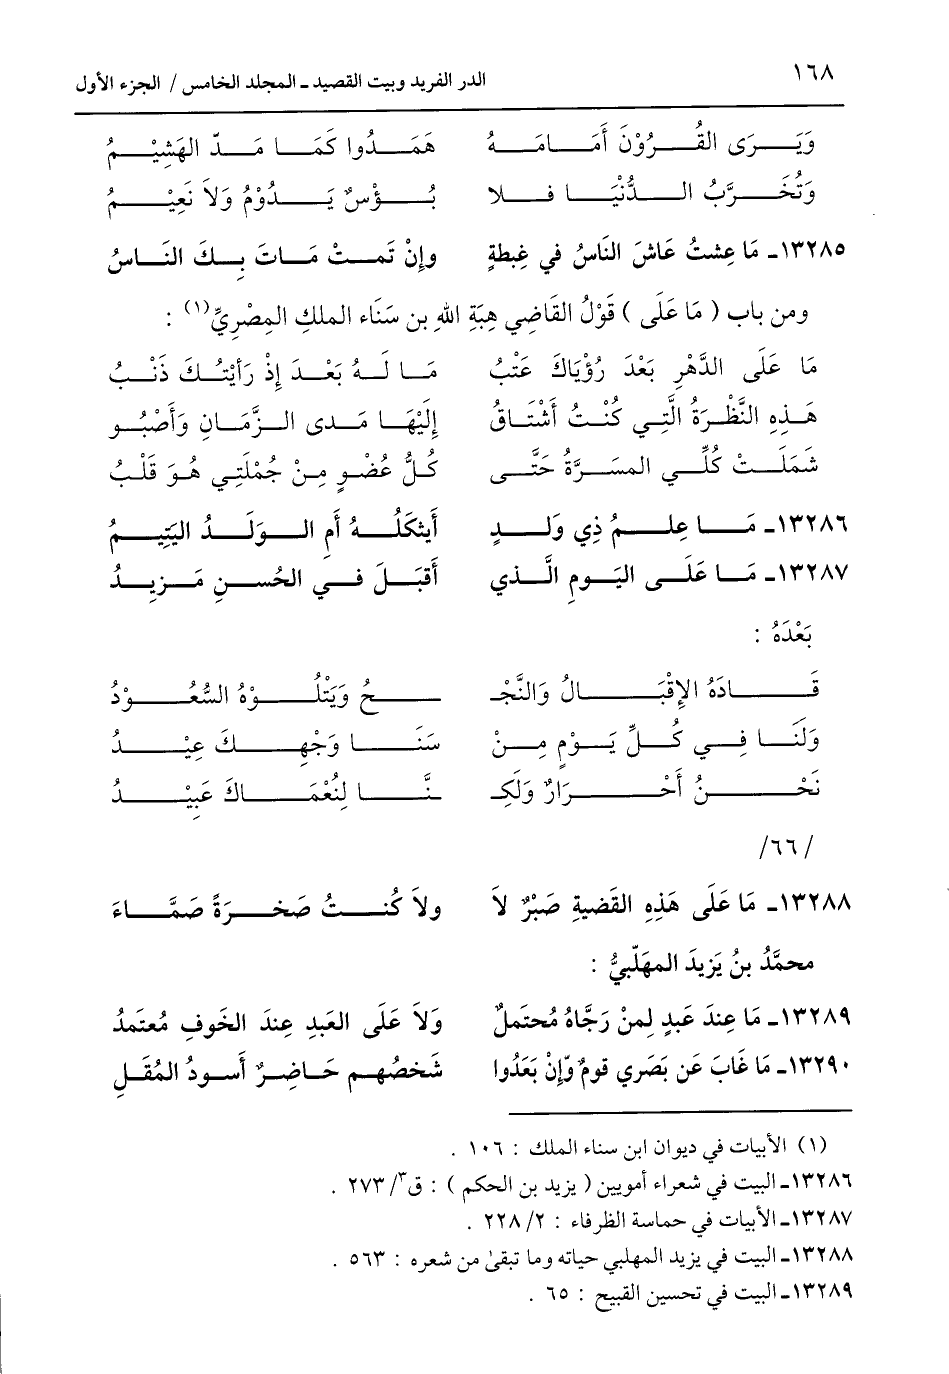 ١٦٨ الدر الفريد وبيت القصيد ـ المجلد الخامس / الجزء الأول
وَيَرَى القُرُوْنَ أَمَامَهُ هَمَدُوا كَمَا مَدّ الهَشِيْمُ
وَتُخَرَّبُ الدُّنْيَا فلا بُؤْسٌ يَدُوْمُ وَلاَ نَعِيْمُ
١٣٢٨٥ـ مَا عِشتُ عَاشَ النَاسُ في غِبطةٍ وإنْ تَمتْ مَاتَ بِكَ النَاسُ
ومن باب ( مَا عَلَى ) قَوْلُ القَاضِي هِبَةِ اللهِ بن سَنَاء الملكِ المِصْرِيِّ(١) :
مَا عَلَى الدَّهْرِ بَعْدَ رُؤْيَاكَ عَتْبُ مَا لَهُ بَعْدَ إِذْ رَأَيْتُكَ ذَنْبُ
هَذِهِ النَّظْرَةُ الَّتِي كُنْتُ أَشْتَاقُ إِلَيْهَا مَدى الزَّمَانِ وَأَصْبُو
شَمَلَتْ كُلِّي المسَرَّةُ حَتَّى كُلُّ عُضْوٍ مِنْ جُمْلَتِي هُوَ قَلْبُ
١٣٢٨٦ـ مَا عِلمُ ذِي وَلدٍ أَيثكَلُهُ أمِ الوَلَدُ اليَتِيمُ
١٣٢٨٧ـ مَا عَلَى اليَومِ الَّذي أقبَلَ في الحُسنِ مَزِيدُ
بَعْدَهُ :
قَادَهُ الإِقْبَالُ وَالنَّجْـ ـحُ وَيَتْلُوْهُ السُّعُوْدُ
وَلَنَا فِي كُلِّ يَوْمٍ مِنْ سَنَا وَجْهِكَ عِيْدُ
نَحْنُ أَحْرَارٌ وَلَكِـ ـنَّا لِنُعْمَاكَ عَبِيْدُ
/٦٦/
١٣٢٨٨ـ مَا عَلَى هَذِهِ القَضيةِ صَبْرٌ لاَ ولاَ كُنتُ صَخرَةً صَمَّاءَ
محمَّدُ بنُ يَزيدَ المهلّبيُّ :
١٣٢٨٩ـ مَا عِندَ عَبدٍ لِمنْ رَجَّاهُ مُحتَملٌ وَلاَ عَلَى العَبدِ عِندَ الخَوفِ مُعتَمدُ
١٣٢٩٠ـ مَا غَابَ عَن بَصَري قومٌ وّإنْ بَعَدُوا شَخصُهم حَاضِرٌ أَسودُ المُقَلِ
(١) الأبيات في ديوان ابن سناء الملك : ١٠٦ .
١٣٢٨٦ـ البيت في شعراء أمويين ( يزيد بن الحكم ) : ق٣/ ٢٧٣ .
١٣٢٨٧ـ الأبيات في حماسة الظرفاء : ٢/ ٢٢٨ .
١٣٢٨٨ـ البيت في يزيد المهلبي حياته وما تبقىٰ من شعره : ٥٦٣ .
١٣٢٨٩ـ البيت في تحسين القبيح : ٦٥ .